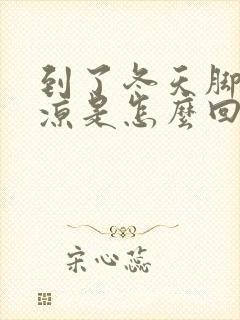 到了冬天脚
凉是怎麼回
宋心蕊